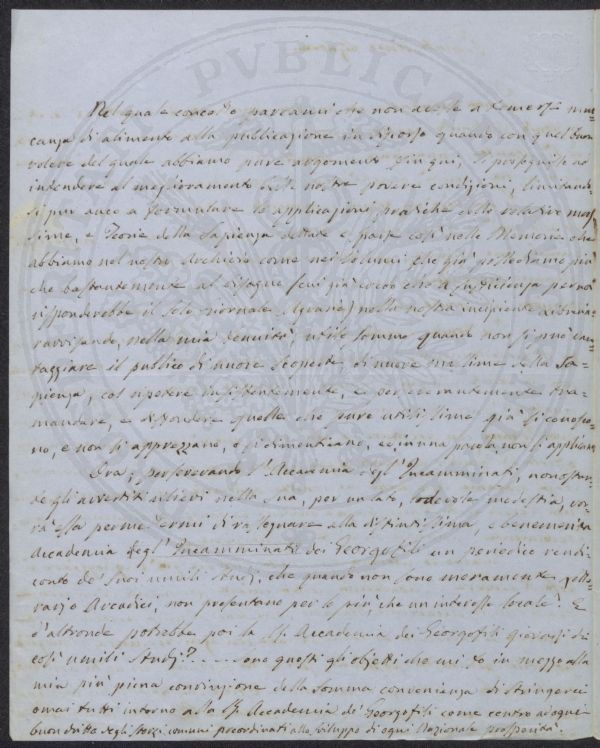 PVBLICA
Nel quale concetto pareami che non avesse a temersi man-
canza di alimento alla pubblicazione in discorso quando con quel buon
volere del quale abbiamo pure argomento fin qui, si proseguisse ad
intendere al miglioramento delle nostre povere condizioni, limitando-
si pur anco a formulare le applicazioni pratiche delle relative mas-
sime, e Teorie della Sapienza dettate e sparse così nelle Memorie che
abbiamo nel nostro Archivio come nei Volumi che già possediamo più
che bastantemente al bisogno (cui già credo che a sufficienza
risponderebbe il solo Giornale Agrario) nella nostra incipiente Libreria
ravvisando, nella mia tenuità, utile sommo quando non si può van-
taggiare il pubblico di nuove scoperte, di nuove massime della Sa-
pienza, col ripetere insistentemente, e perseverantemente tra-
mandare, e diffondere quelle che pure utilissime già si conosco-
no, e non si apprezzano, o si dimenticano, ed in una parola non si applicano
Ora, perseverando l'Accademia degl'Incamminati, nonostan-
te gli avvertiti rilievi nella sua, per un lato, lodevole modestia, vor-
rà essa permettermi di rassegnare alla distintissima, e benemerita
Accademia degl'Incamminati dei Georgofili un periodico rendi-
conto de' suoi umili studj, che quando non sono meramente
Arcadici, non presentano per lo più, che un interesse locale? E
d'altronde potrebbe poi la Accademia dei Georgofili giovarsi di
così umili studj? ..... sono questi gli obietti che mi in mezzo alla
mia più piena convinzione della somma convenienza di stringerci
omai tutti intorno alla Accademia de' Georgofili come centro ad ogni
buon dritto degli sforzi comuni preordinati allo sviluppo di ogni Nazionale prosperità.